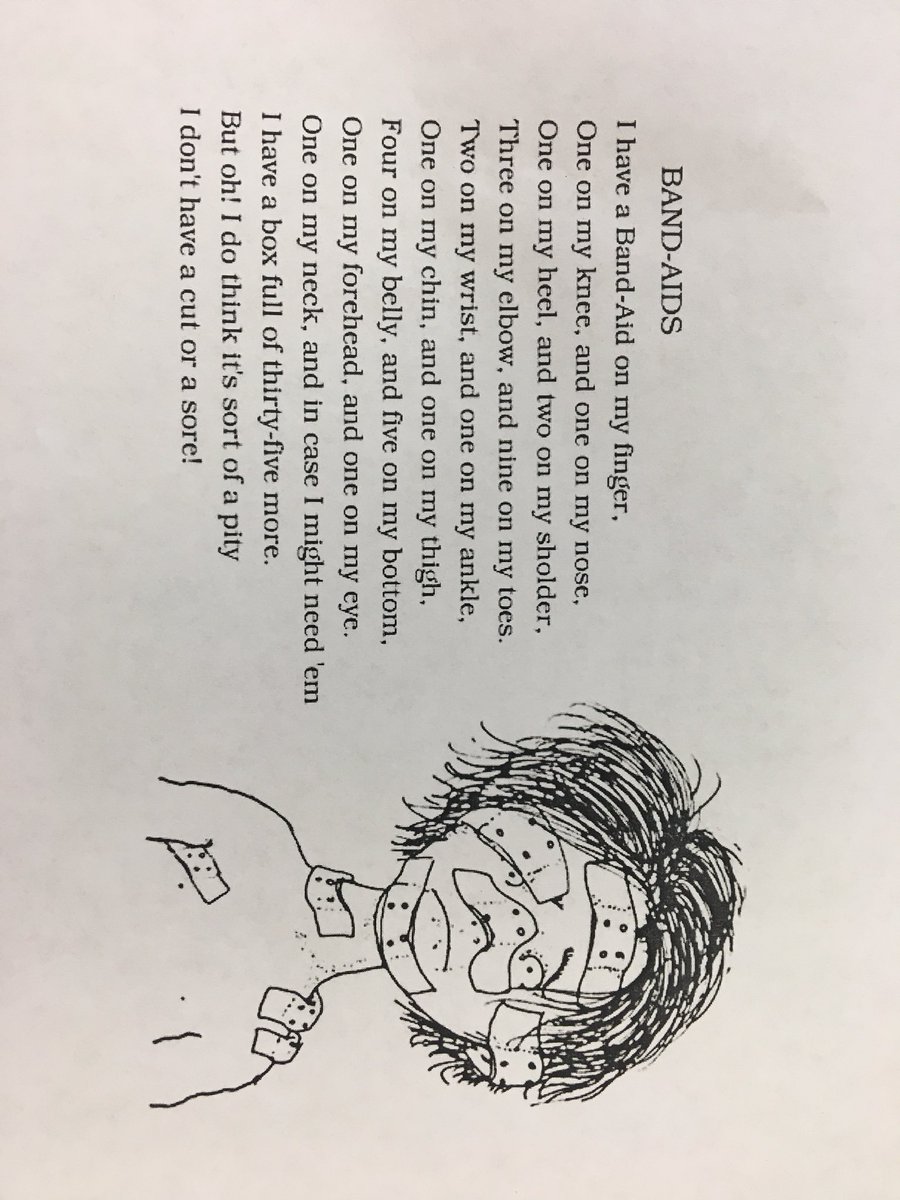 BAND-AIDS
I have a Band-Aid on my finger,
One on my knee, and one on my nose,
One on my heel, and two on my sholder,
Three on my elbow, and nine on my toes.
Two on my wrist, and one on my ankle,
One on my chin, and one on my thigh,
Four on my belly, and five on my bottom,
One on my forehead, and one on my eye.
One on my neck, and in case I might need 'em
I have a box full of thirty-five more.
But oh! I do think it's sort of a pity
I don't have a cut or a sore!